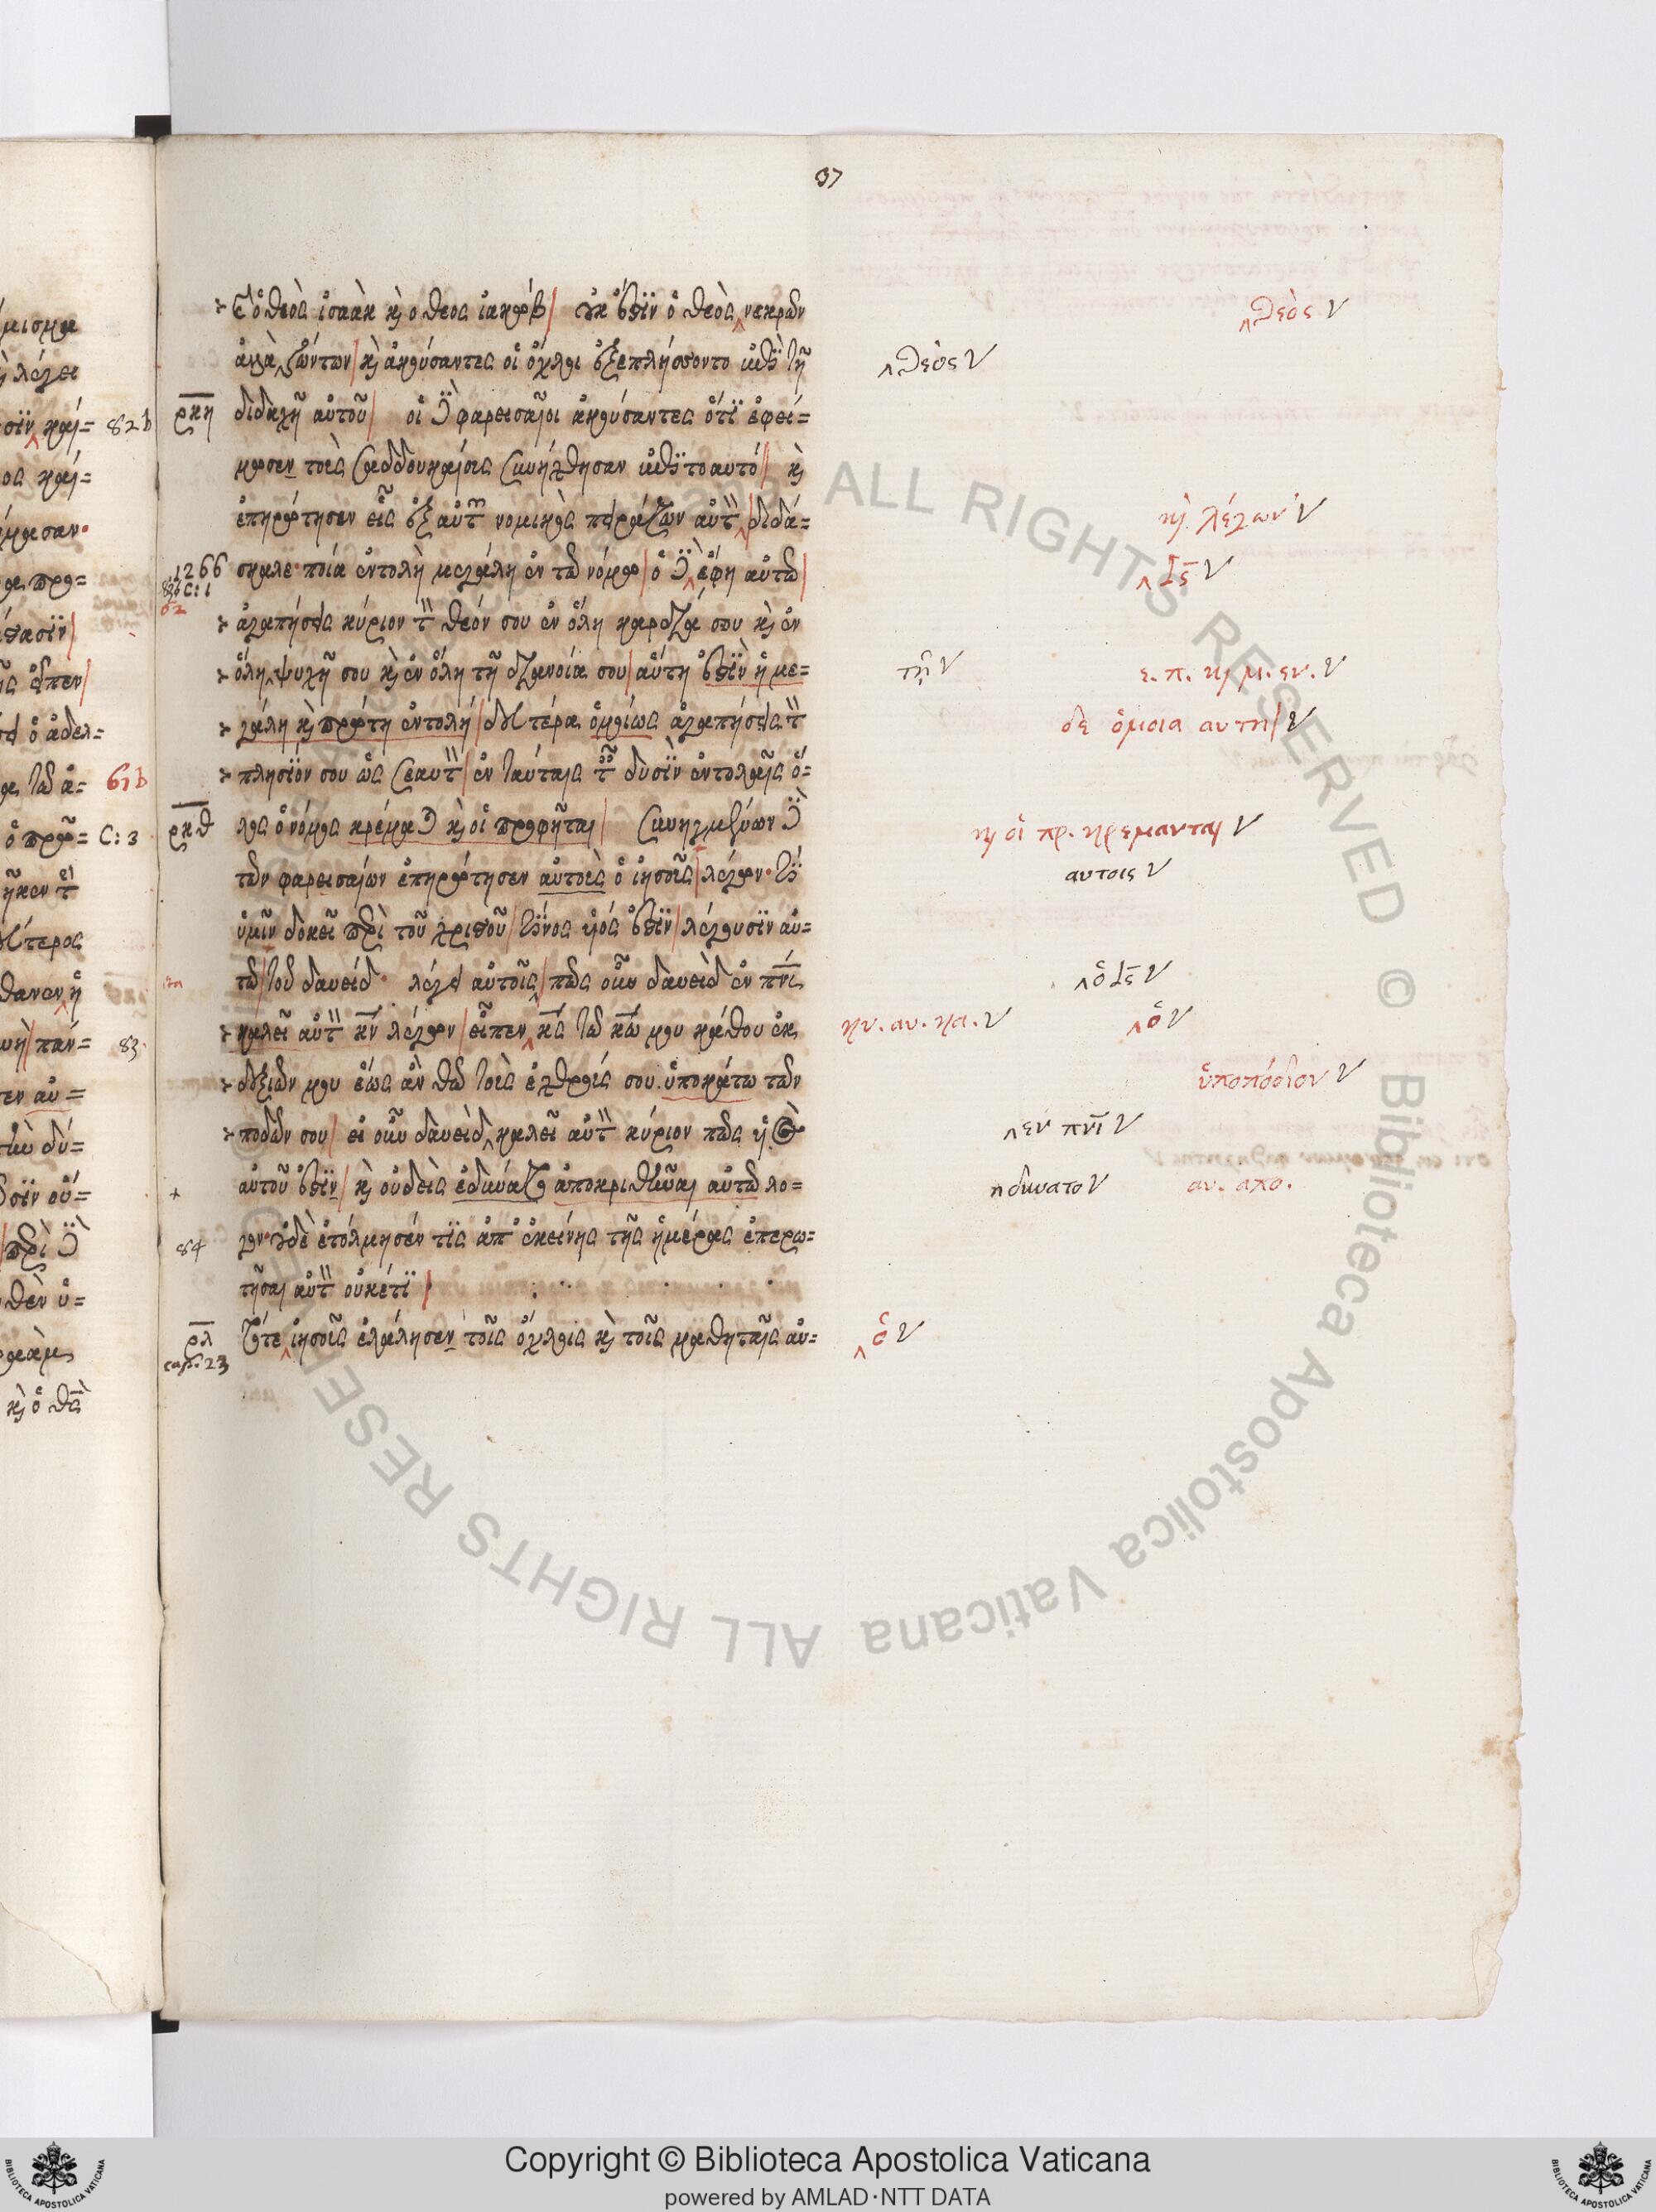 37
ὁ θεὸς ἰσαὰκ κὶ ο θεος ἰακώβ οὐκ ἐστϊν ὁ θεὸς νεκρῶν
ἀλλὰ ζώντων κὶ ἀκούσαντες οἱ ὄχλοι ἐξεπλήσσοντο ἐπὶ τῆ
ρκη διδαχῆ αὐτοῦ οἱ δὲ φαρεισαῖοι ἀκούσαντες ὅτϊ ἐφεί=
μωσεν τοὺς σαδδουκαίους συνήχθησαν ἐπὶ τοαυτό κὶ
ἐπηρώτησεν εἷς ἐξ αὐτῶν νομικὸς πειράζων αὐτὸν διδά=
1266 σκαλε ποία ἐντολὴ μεγάλη ἐν τῶ νόμω ὁ δὲ ἔφη αὐτῶ
ἀγαπήσεις κύριον τὸν θεόν σου ἐν ὅλη καρδία σου κὶ ἐν
ὅλη ψυχῆ σου κὶ ἐν ὅλη τῆ διανοία σου αὕτη ἐστϊν ἡ με=
γάλη κὶ πρώτη ἐντολή δευτέρα ὁμοίως ἀγαπήσεις τὸν
πλησϊόν σου ὡς σεαυτὸν ἐν ταύταις ταῖς δυσϊν ἐντολαῖς ὅ=
ρκθ λος ὁ νόμος κρέμαται κὶ οἱ προφῆται συνηγμένων δὲ
τῶν φαρεισαίων ἐπηρώτησεν αὐτοὺς ὁ ἰησοῦς λέγων τί
ὑμῖν δοκεῖ περὶ τοῦ χριστοῦ τίνος υἱός ἐστϊν λέγουσϊν αὐ=
τῶ τοῦ δαυείδ λέγει αὐτοῖς πῶς οὖν δαυεὶδ ἐν πνι
καλεῖ αὐτὸν κν λέγων εἶπεν κς τῶ κω μου κάθου ἐκ
δεξιῶν μου ἕως ἂν θῶ τοὺς ἐχθρούς σου ὑποκάτω τῶν
ποδῶν σου εἰ οὖν δαυεὶδ καλεῖ αὐτὸν κύριον πῶς υἱὸς
αὐτοῦ ἐστϊν κὶ οὐδεὶς ἐδύνατο ἀποκριθῆναι αὐτῶ λό=
84 γον οὐδὲ ἐτόλμησέν τϊς ἀπ' ἐκείνης τῆς ἡμέρας ἐπερω=
τῆσαι αὐτὸν οὐκέτϊ
ρλ Τότε ἰησοῦς ἐλάλησεν τοῖς ὄχλοις κὶ τοῖς μαθηταῖς αὐ=
cap. 23
θεὸς
θεὸς
κὶ λέγων
ις
τῆ
ε. π. κὶ μ. εν.
δε ὁμοια αυτη
κὶ οἱ πρ. κρεμανται
αυτοις
ὁ ις
κν. αυ. κα.
ὁ
ὑποπόδιον
εν πνι
ηδυνατο
αυ. απο.
ὁ
82b
61b
C: 3
83
Copyright © Biblioteca Apostolica Vaticana
powered by AMLAD·NTT DATA
ALL RIGHTS RESERVED © Biblioteca Apostolica Vaticana